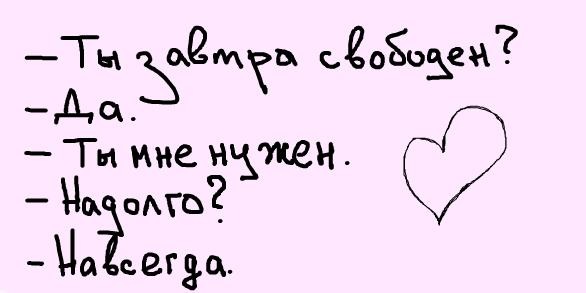 – Ты завтра свободен?
– Да.
– Ты мне нужен.
– Надолго?
– Навсегда.